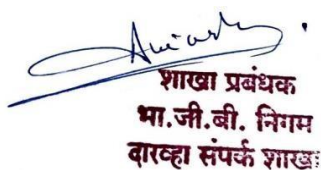 शाखा प्रबंधक
भा.जी.बी. निगम
दारव्हा संपर्क शाखा